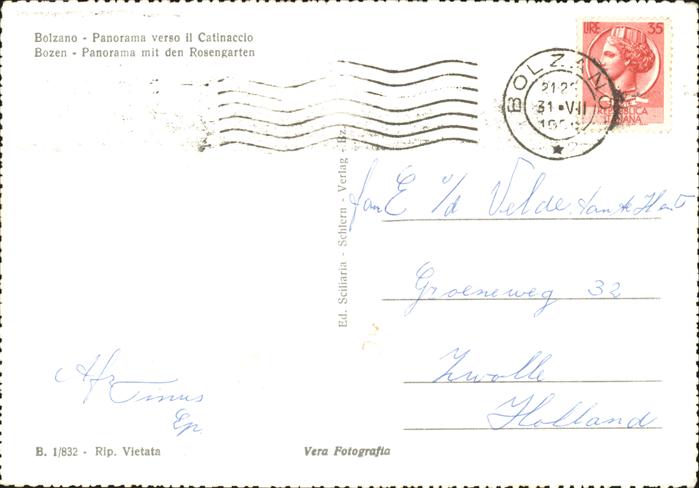 Bolzano - Panorama verso il Catinaccio
Bozen - Panorama mit den Rosengarten
LIRE 35
BOLZANO
31 • VII
Ed. Sciliaria - Schlern - Verlag - Bz.
Fam E v/d Velde
Groeneweg 32
Zwolle
Holland
Afz
Tinus
Ep.
B. 1/832 - Rip. Vietata
Vera Fotografia